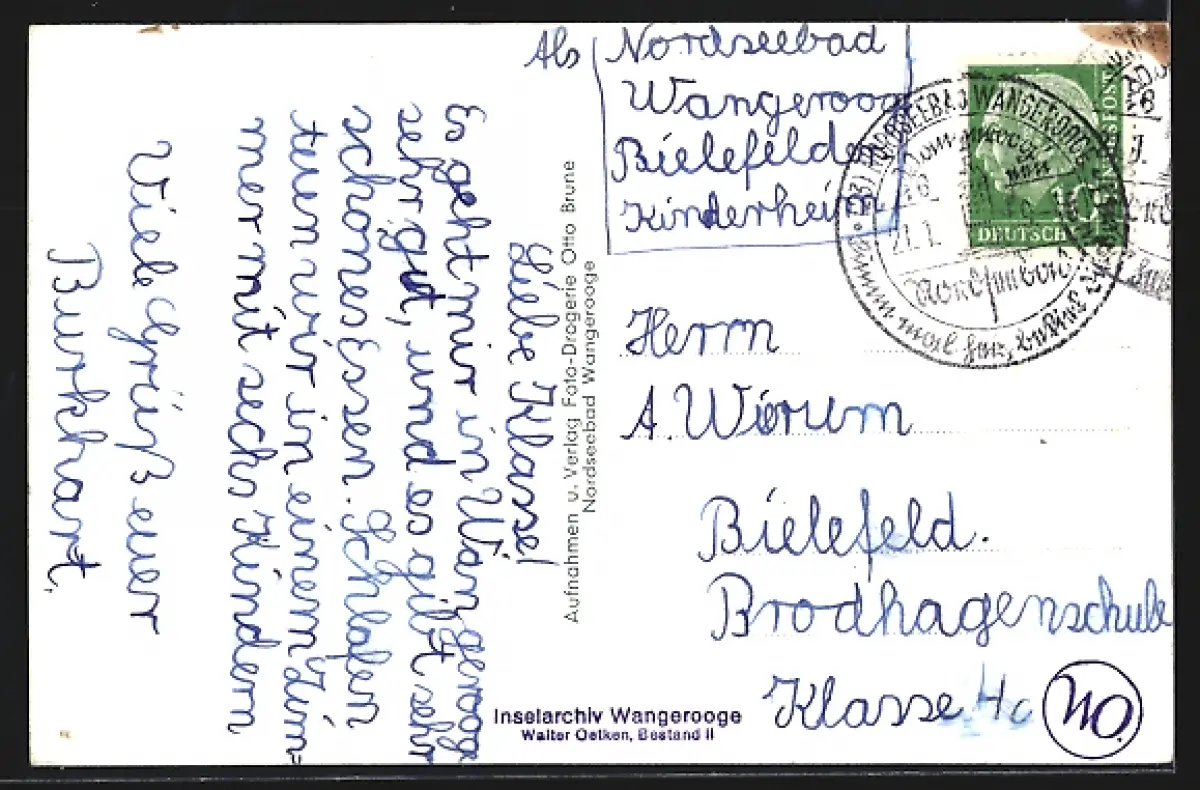 Liebe Klasse!
Es geht mir in Wangerooge
sehr gut, und es gibt sehr
schönes Essen. Schlafen
tuen wir in einem Zim=
mer mit sechs Kindern
Viele Grüß euer
Burkhart.
Aufnahmen u. Verlag Foto-Drogerie Otto Brune
Nordseebad Wangerooge
Abs
Nordseebad
Wangerooge
Bielefelder
Kinderheim
NORDSEEBAD WANGEROOGE
27.1.
DEUTSCHE BUNDESPOST
10
Herrn
A. Wörum
Bielefeld.
Brodhagenschule
Klasse 4c
Inselarchiv Wangerooge
Walter Oetken, Bestand II